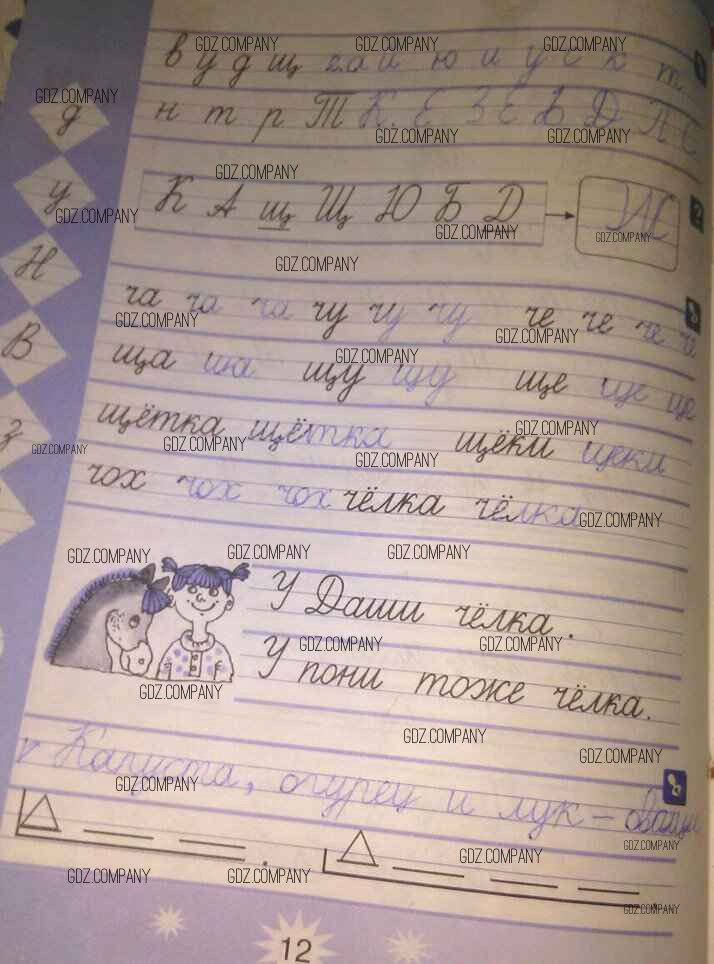 в у д щ
н т р Т К Е З Е Б Д Л С
д
К А щ Щ Ю Б Д Ж
у
Н
ча ча ча чу чу чу че че че че
В
ща ща щу щу ще ще ще
щётка щётка щёки щеки
з
чох чох чох чёлка чёлка
У Даши чёлка.
У пони тоже чёлка.
Капуста, огурец и лук –
12
GDZ.COMPANY